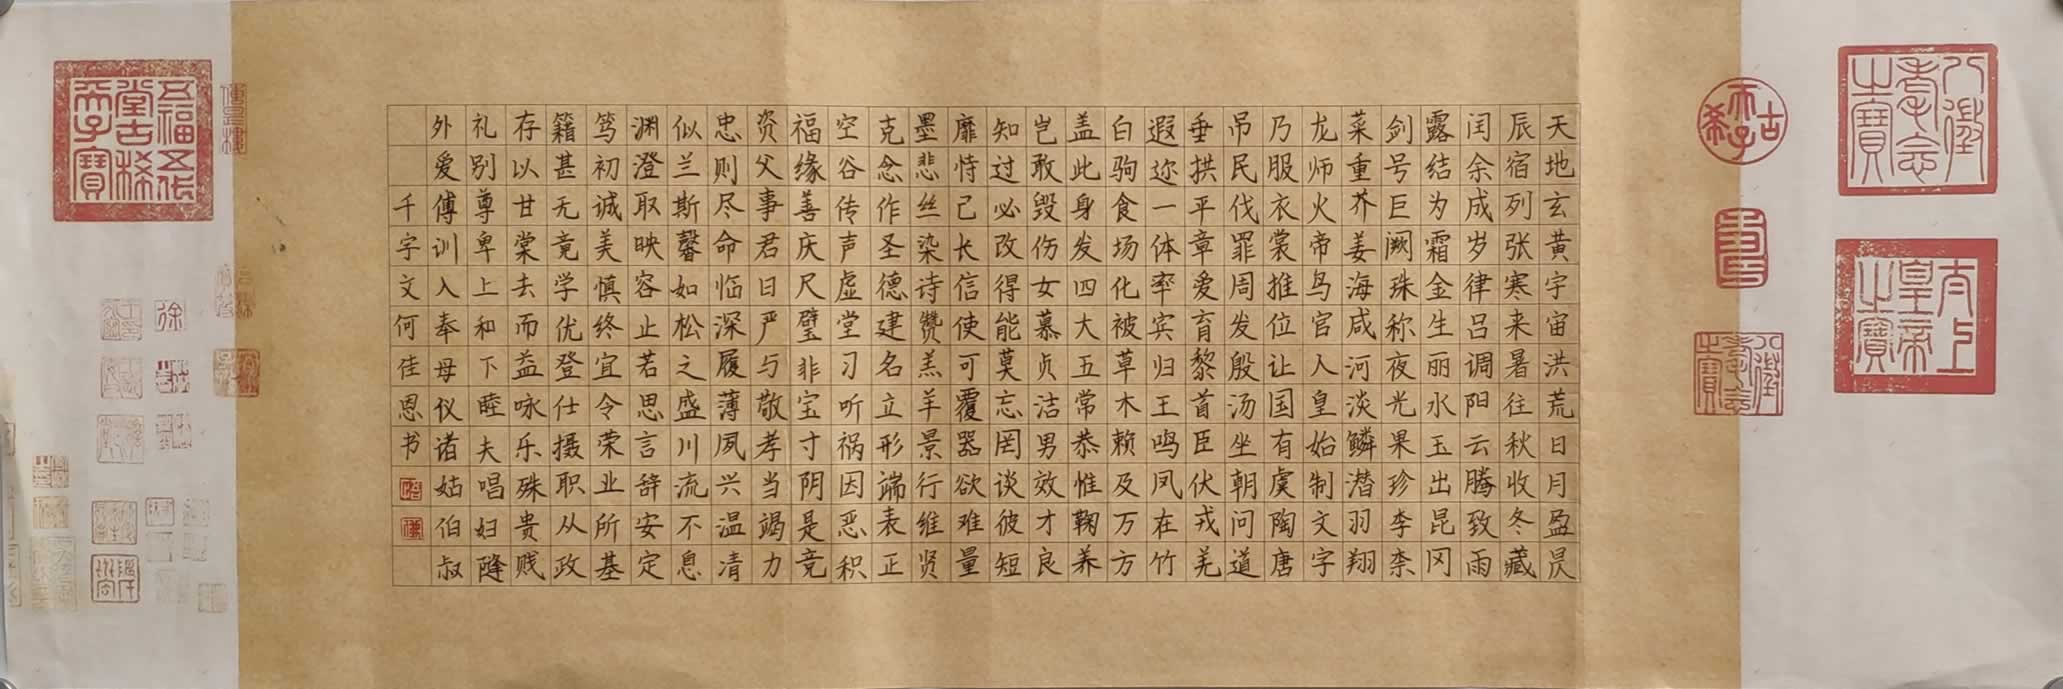 八徵耄念之寶
太上皇帝之寶
古希天子
壽
八徵耄念之寶
天地玄黄宇宙洪荒日月盈昃
辰宿列张寒来暑往秋收冬藏
闰余成岁律吕调阳云腾致雨
露结为霜金生丽水玉出昆冈
剑号巨阙珠称夜光果珍李柰
菜重芥姜海咸河淡鳞潜羽翔
龙师火帝鸟官人皇始制文字
乃服衣裳推位让国有虞陶唐
吊民伐罪周发殷汤坐朝问道
垂拱平章爱育黎首臣伏戎羌
遐迩一体率宾归王鸣凤在竹
白驹食场化被草木赖及万方
盖此身发四大五常恭惟鞠养
岂敢毁伤女慕贞洁男效才良
知过必改得能莫忘罔谈彼短
靡恃己长信使可覆器欲难量
墨悲丝染诗赞羔羊景行维贤
克念作圣德建名立形端表正
空谷传声虚堂习听祸因恶积
福缘善庆尺璧非宝寸阴是竞
资父事君曰严与敬孝当竭力
忠则尽命临深履薄夙兴温凊
似兰斯馨如松之盛川流不息
渊澄取映容止若思言辞安定
笃初诚美慎终宜令荣业所基
籍甚无竟学优登仕摄职从政
存以甘棠去而益咏乐殊贵贱
礼别尊卑上和下睦夫唱妇随
外爱傅训入奉母仪诸姑伯叔
千字文何佳恩书
五福五代堂古稀天子寶